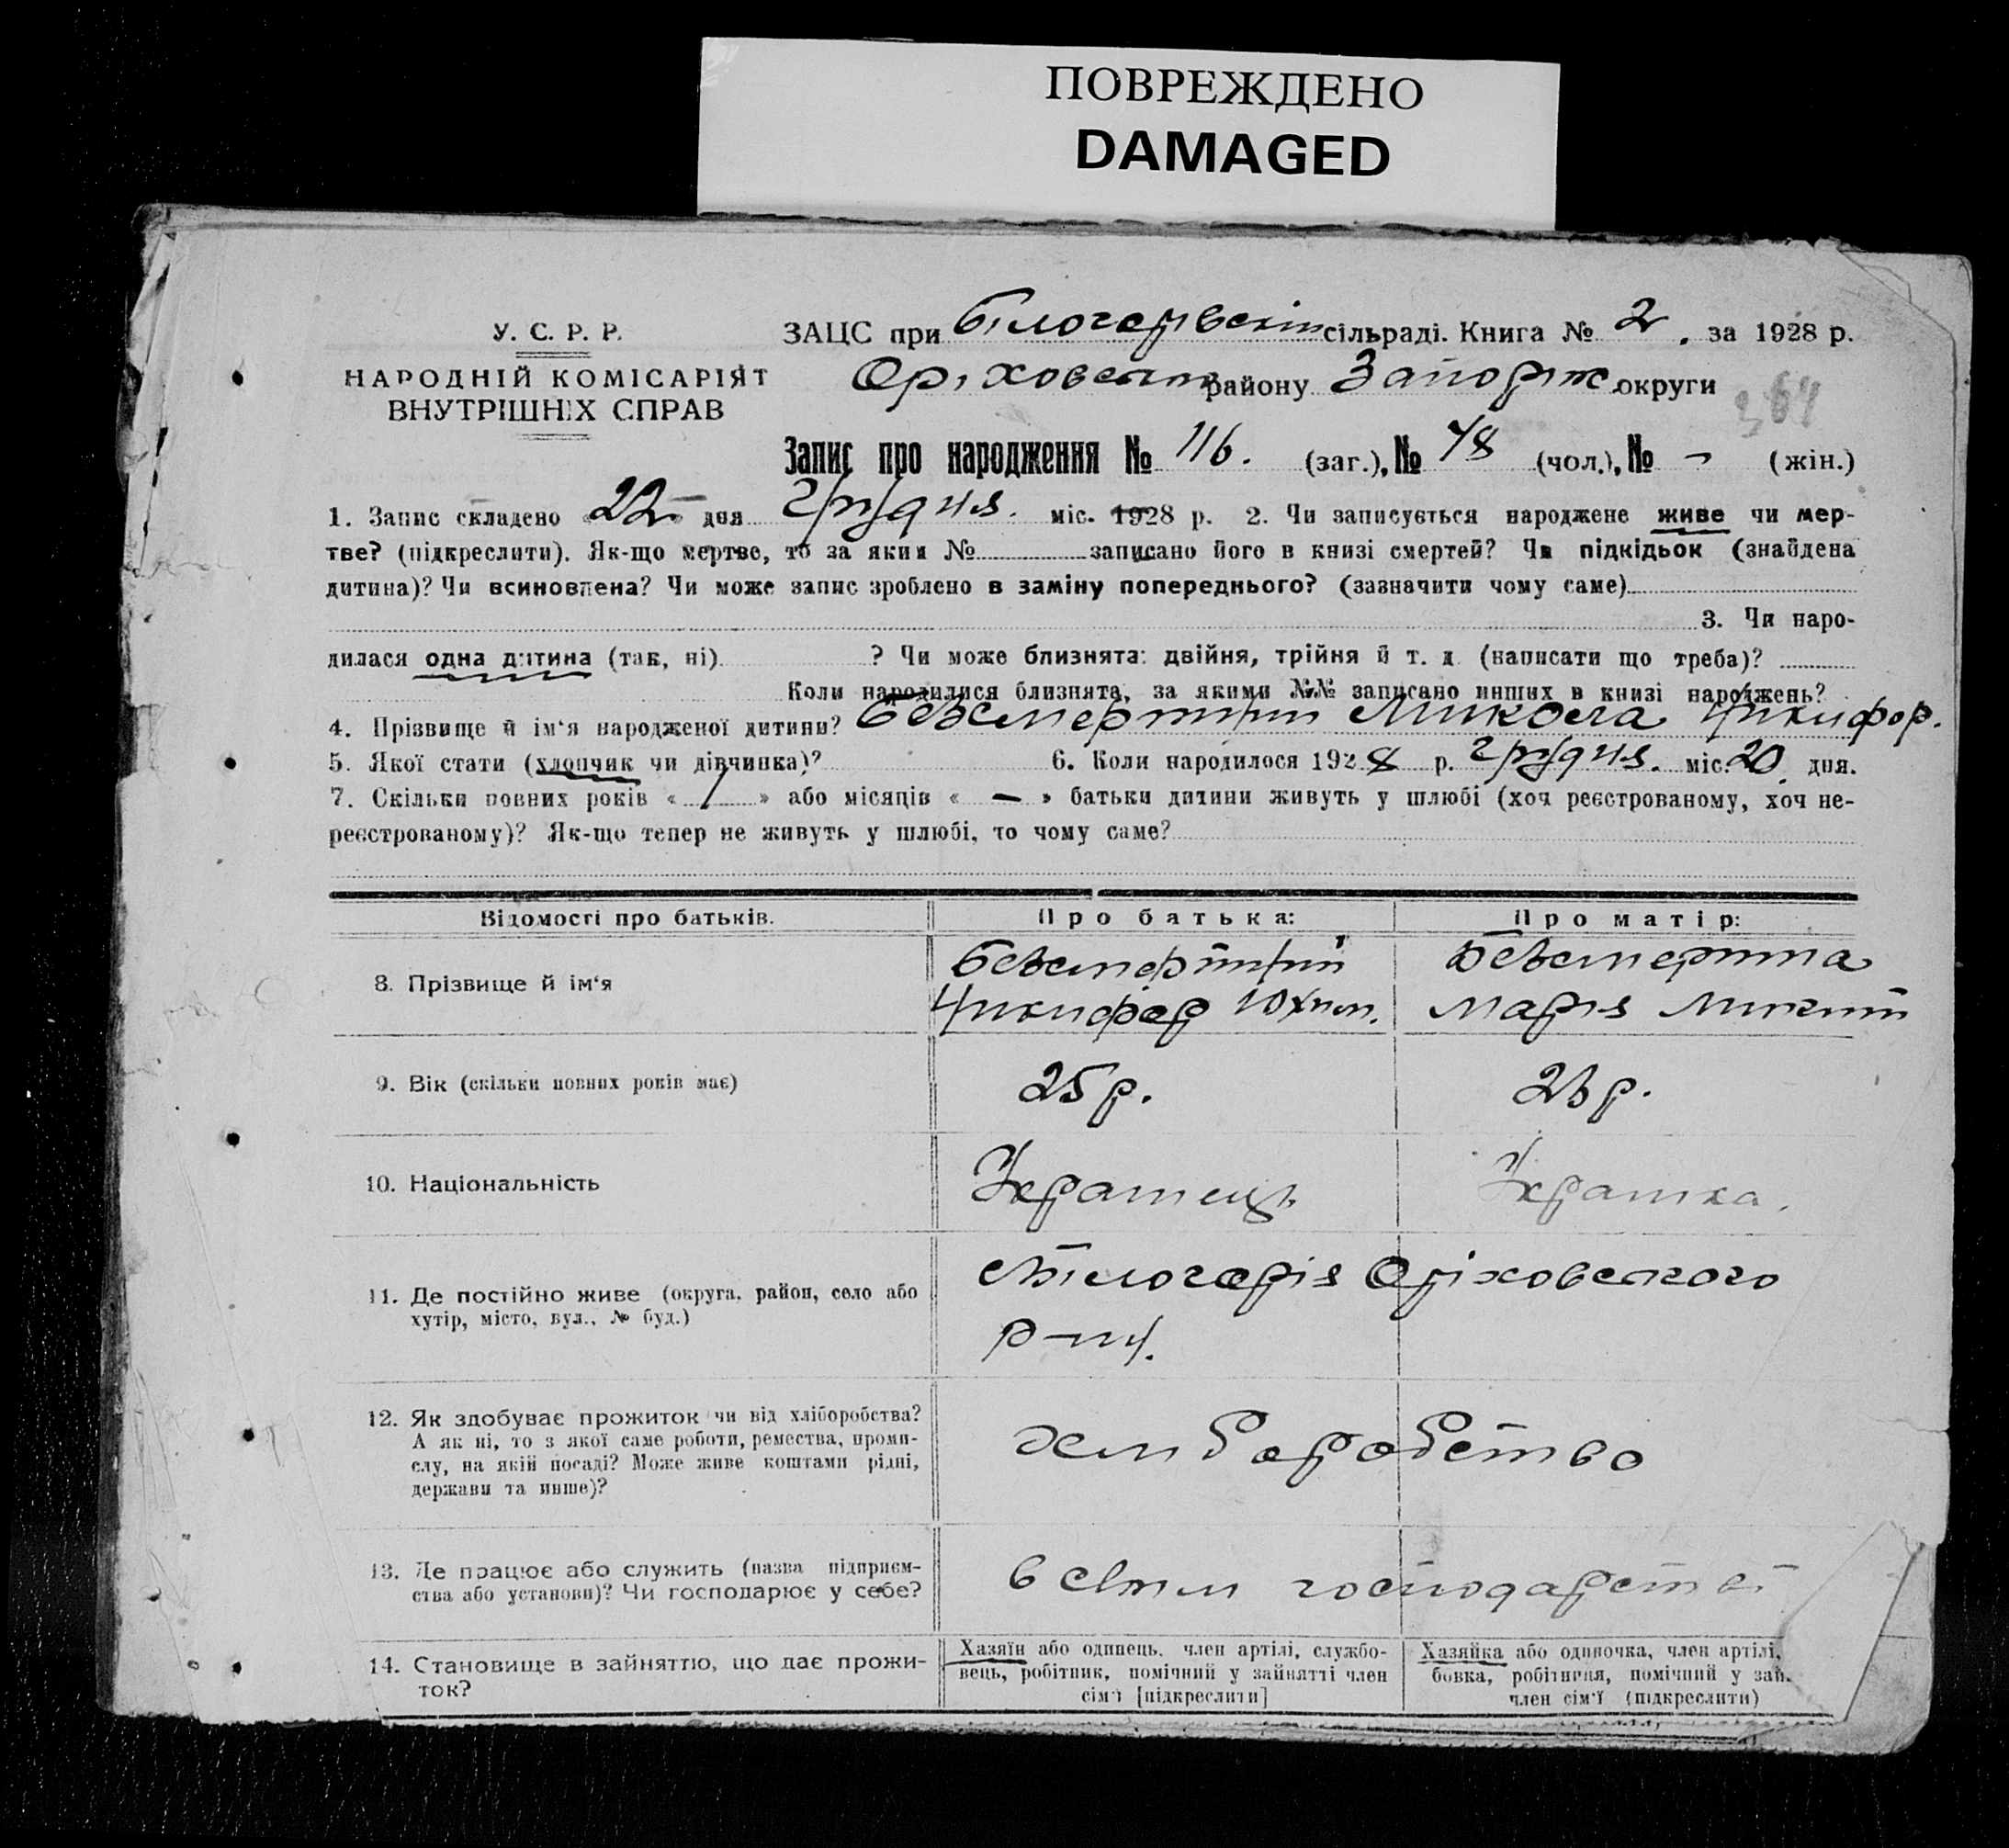 ПОВРЕЖДЕНО
DAMAGED
У. С. Р. Р.
НАРОДНІЙ КОМІСАРІЯТ
ВНУТРІШНІХ СПРАВ
ЗАЦС при сільраді. Книга № 2. за 1928 р.
району Запоріж. округи
364
Запис про народження № 116. (заг.), № 78 (чол.), № - (жін.)
1. Запис складено «22» дня грудня. міс. 1928 р. 2. Чи записується народжене живе чи мер-
тве? (підкреслити). Як-що мертве, то за яким № записано його в книзі смертей? Чи підкідьок (знайдена
дитина)? Чи всиновлена? Чи може запис зроблено в заміну попереднього? (зазначити чому саме)
3. Чи наро-
дилася одна дитина (так, ні) ? Чи може близнята: двійня, трійня й т. д. (написати що треба)?
Коли народилися близнята, за якими №№ записано инших в книзі народжень?
4. Прізвище й ім'я народженої дитини? Безсмертний Микола Никифор.
5. Якої стати (хлопчик чи дівчинка)? 6. Коли народилося 1928 р. грудня. міс. 20. дня.
7. Скільки повних років «1» або місяців «—» батьки дитини живуть у шлюбі (хоч реєстрованому, хоч не-
реєстрованому)? Як-що тепер не живуть у шлюбі, то чому саме?
Відомості про батьків. Про батька: Про матір:
8. Прізвище й ім'я
Безсмертний
Никифор Юхим.
Безсмертна
Марія
9. Вік (скільки повних років має) 25 р. 23 р.
10. Національність Українець Українка.
11. Де постійно живе (округа, район, село або
хутір, місто, вул., № буд.)
с Білогорія Оріховського
р-ну.
12. Як здобуває прожиток чи від хліборобства?
А як ні, то з якої саме роботи, ремества, проми-
слу, на якій посаді? Може живе коштами рідні,
держави та инше)?
хлиборобство
13. Де працює або служить (назва підприєм-
ства або установи)? Чи господарює у себе?
в своїм господарстві
14. Становище в зайняттю, що дає прожи-
ток?
Хазяїн або одинець, член артілі, службо-
вець, робітник, помічний у зайнятті член
сім'ї [підкреслити]
Хазяйка або одиночка, член артілі,
бовка, робітниця, помічний у зай.
член сім'ї (підкреслити)